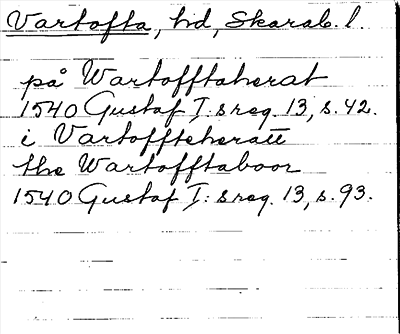 Vartofta, hd, Skarab. l.
på Wartofftaherat
1540 Gustaf I: s reg. 13, s. 42.
i Vartoffteheratt
the Wartofftaboor
1540 Gustaf I: s reg. 13, s. 93.